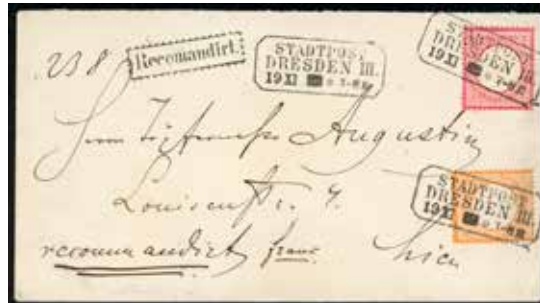 238
Recomandirt.
STADTPOST
DRESDEN III.
19 XI 7-8 N
STADTPOST
DRESDEN III.
STADTPOST
DRESDEN III.
19 XI
Herrn Augustin
Louisenstr. 4.
recommandirt franco hier